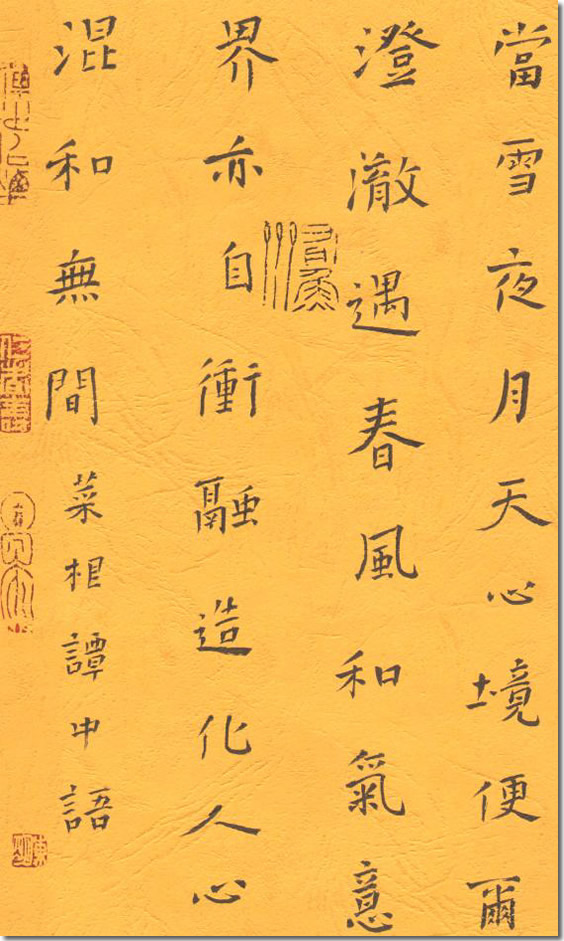 當雪夜月天心境便爾
澄澈遇春風和氣意
界亦自衝融造化人心
混和無間菜根譚中語